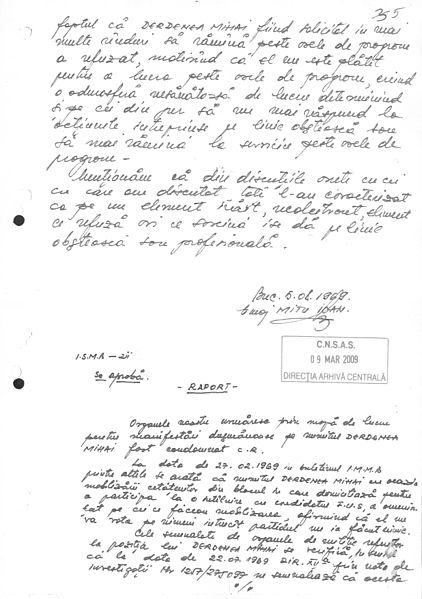 355
faptul că DERDENEA MIHAI fiind solicitat in mai
multe rînduri să rămînă peste orele de program
a refuzat, motivînd că el nu este plătit
pentru a lucra peste orele de program, creind
o atmosferă nesănătoasă de lucru determinînd
și pe cei din jur să nu mai răspundă la
acțiunile intreprinse pe linie obștească sau
să mai rămînă la serviciu peste orele de
program -
Menționăm că din discuțiile avute cu cei
cu care am discutat toți l-au caracterizat
ca pe un element
ce refuză ori ce sarcină i se dă pe linie
obștească sau profesională.
Buc. 5.01.1969.
MITU IOAN
C.N.S.A.S.
09 MAR 2009
DIRECȚIA ARHIVĂ CENTRALĂ
I.S.M.B - 211
Se aprobă.
- RAPORT -
Organele noastre urmăresc prin mapă de lucru
pentru manifestări dușmănoase pe numitul DERDENEA
MIHAI fost condamnat C.R.
La data de 27.02.1969 in buletinul I.M.M.B
printre altele se arată că numitul DERDENEA MIHAI cu ocazia
mobilizării cetățenilor din blocul in care domiciliază pentru
a participa la o intîlnire cu candidatul F.U.S, a amenin-
țat pe cei ce făceau mobilizarea, afirmînd că el nu
va vota pe nimeni intrucît partidul nu i-a făcut nimic.
Cele semnalate de organele de miliție referitor
la poziția lui DERDENEA MIHAI se verifică,
că la data de 22.02.1969 DIR. prin nota de
investigații Nr 1217/275097 ne semnalează că acesta
./.